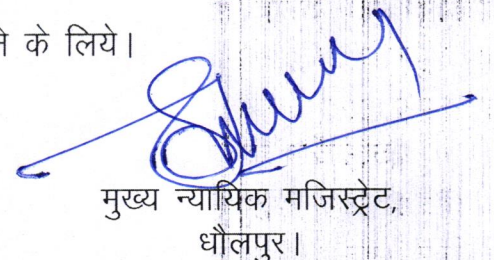 के लिये।
मुख्य न्यायिक मजिस्ट्रेट,
धौलपुर।